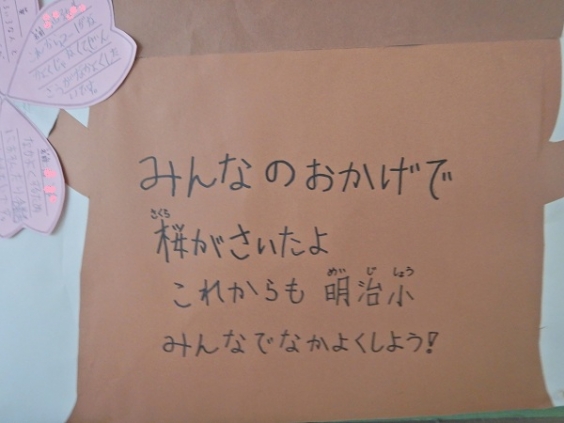 みんなのおかげで
桜がさいたよ
これからも 明治小
みんなでなかよくしよう!